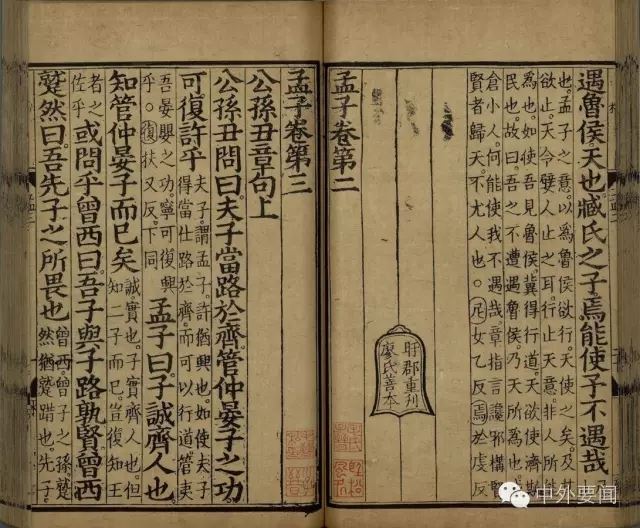 遇魯侯天也臧氏之子焉能使予不遇哉
也。孟子之意。以爲魯侯欲行。天使之矣。及其
欲止。天令嬖人止之耳。行止天意。非人所能
爲也。如使吾見魯侯。冀得行道。天欲使濟斯
民也。故曰。吾之不遭遇魯侯。乃天所爲也。臧
倉小人。何能使我不遇哉。章指言讒邪構賢
賢者歸天。不尤人也。尼女乙反焉於虔反
孟子卷第二
旴郡重刊
廖氏善本
孟子卷第三
公孫丑章句上
公孫丑問曰。夫子當路於齊。管仲晏子之功
可復許乎
夫子。謂孟子。許猶興也。如使夫子
得當仕路於齊。而可以行道。管夷
吾晏嬰之功。寧可復興
乎。復扶又反。下同
孟子曰。子誠齊人也
知管仲晏子而已矣
誠。實也。子實齊人也。但
知二子而已。豈復知王
者之
佐乎
或問乎曾西曰。吾子與子路孰賢。曾西
蹵然曰。吾先子之所畏也
曾西。曾子之孫。蹵
然猶蹵踖也。先子。
中外要闻